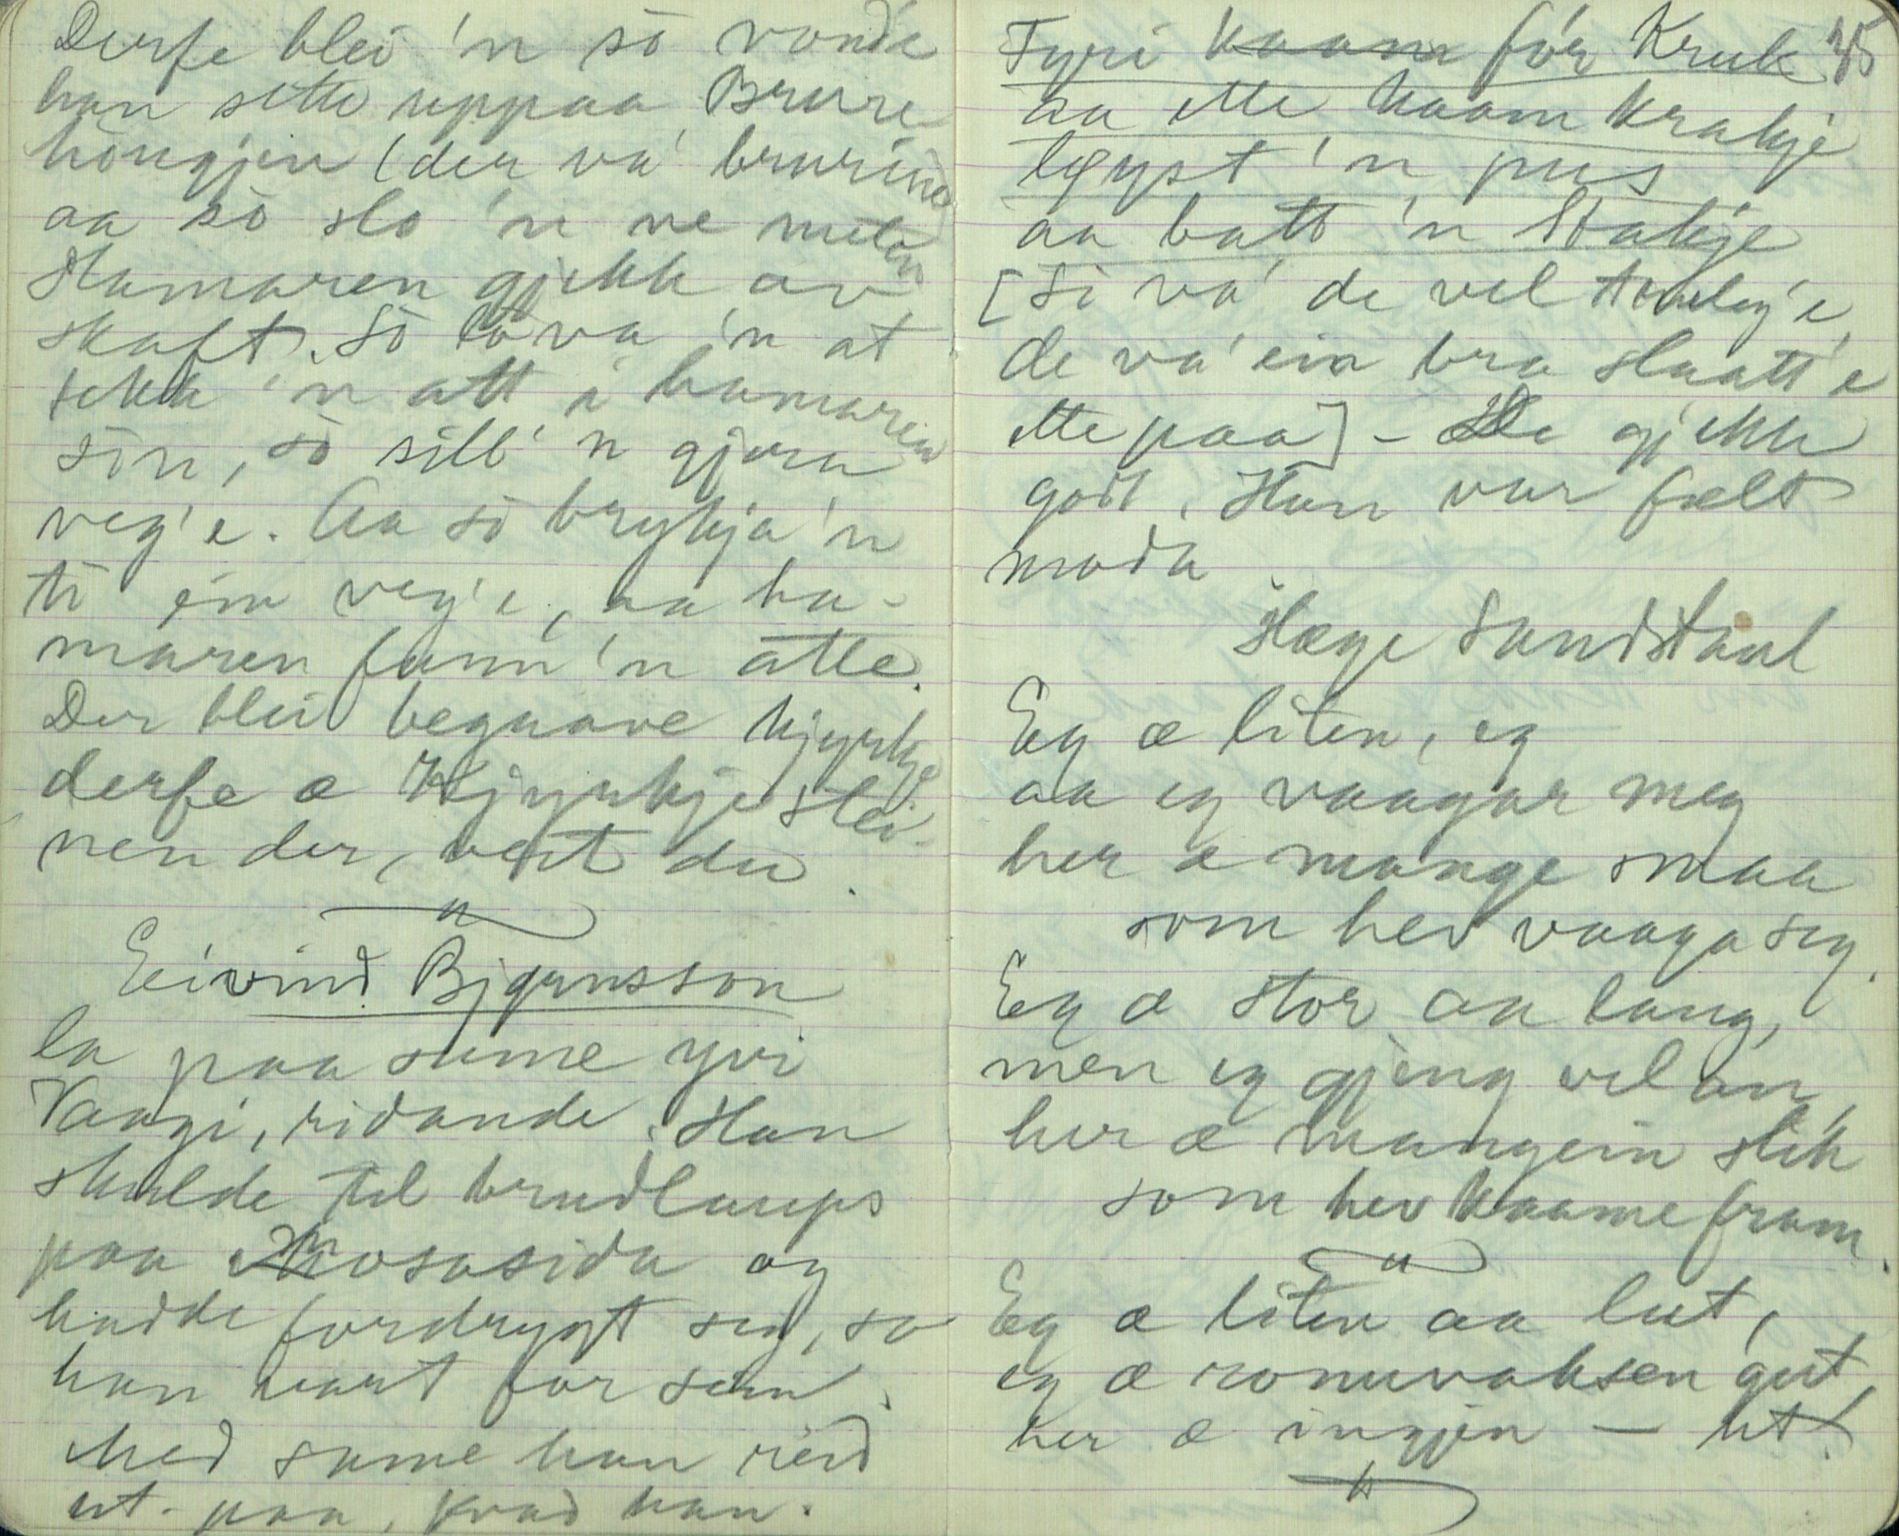 Derfe blei 'n so vond'e
han sette uppaa Brure
höngjen (der va' brurine
aa so slo 'n ne meten
Hamaren gjekk av
skaft. So lova 'n at
fekk 'n att i hamaren
sin, so sill' 'n gjera
veg'e. Aa so brykja 'n
ti ein veg'e, aa ha-
maren funn 'n atte.
Der blei begnave kjyrkje
derfe æ Kjyrkjestei-
nen der, veit du.
Eivind Bjørnsson
la paa sume yvi
Vaagi, ridande. Han
skulde til brudlaups
paa Mosasida og
hadde fordrygt seg, so
han vart for sein.
Med same han reid
ut paa, kvad han.
35
Fyri kaam fór Kruk
aa ette kaam Krakje
løyst 'n pus
aa batt 'n Stakje
[Si va' de vel tomleg'e,
de va' ein bra slaatt'e
ette paa] - De gjekk
godt. Han var fælt
moda
Hæge Sandstaal
Eg æ liten, eg
aa eg vaagar meg
her æ mange smaa
som hev vaaga seg.
Eg æ stor aa lang,
men eg gjeng vel an,
her æ mangein slik
som hev kaame fram.
Eg æ liten aa lut,
eg æ romvaksen gut,
her æ ingjen — ut!